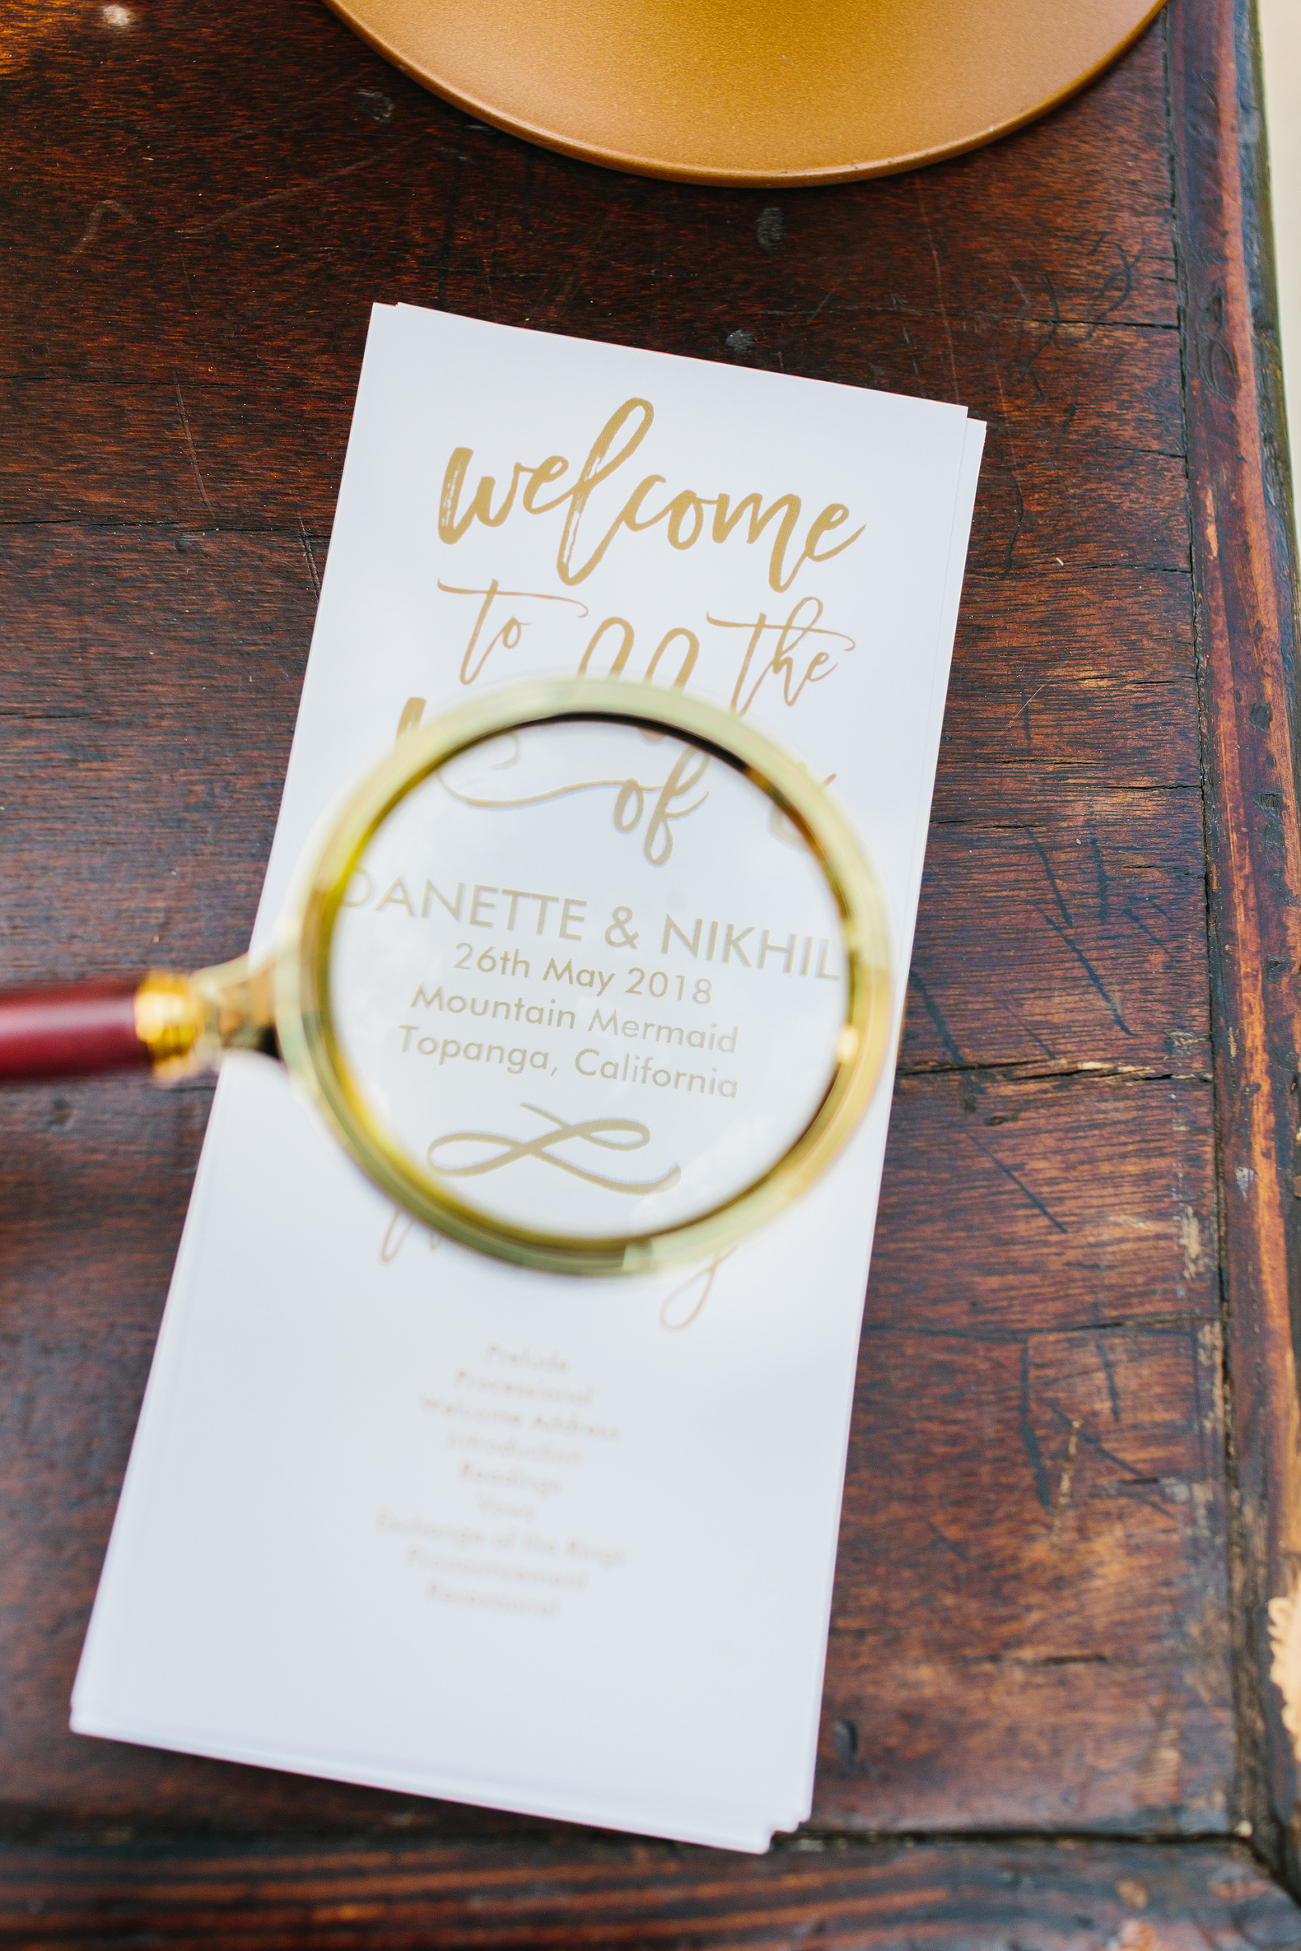 welcome
to the
of
DANETTE & NIKHIL
26th May 2018
Mountain Mermaid
Topanga, California
Prelude
Processional
Welcome Address
Introduction
Readings
Vows
Exchange of the Rings
Pronouncement
Recessional